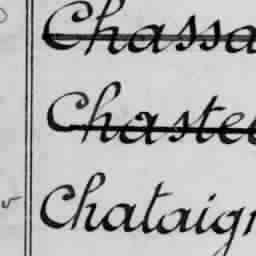 Chassa
Chastel
Chataign